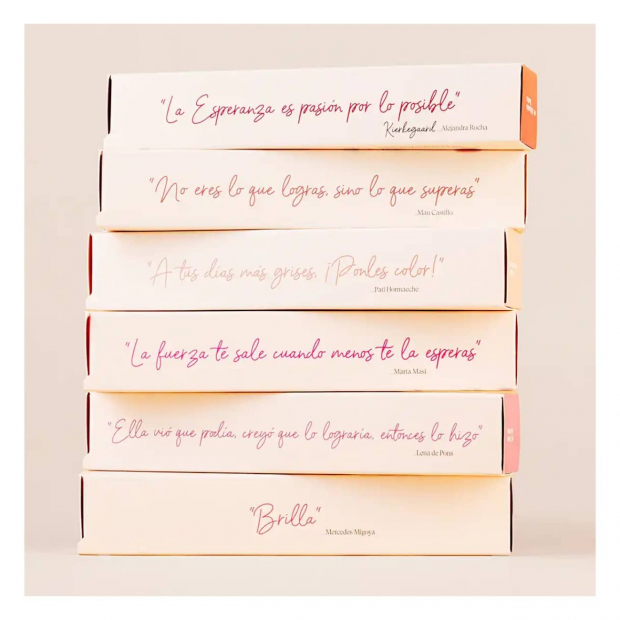 "La Esperanza es pasión por lo posible"
Kierkegaard ..Alejandra Rocha
"No eres lo que logras, sino lo que superas"
..Mau Castillo
"A tus días más grises, ¡Ponles color!"
..Pati Hormaeche
"La fuerza te sale cuando menos te la esperas"
..Marta Masi
"Ella vió que podía, creyó que lo lograría, entonces lo hizo"
..Lena de Pons
"Brilla"
..Mercedes Migoya